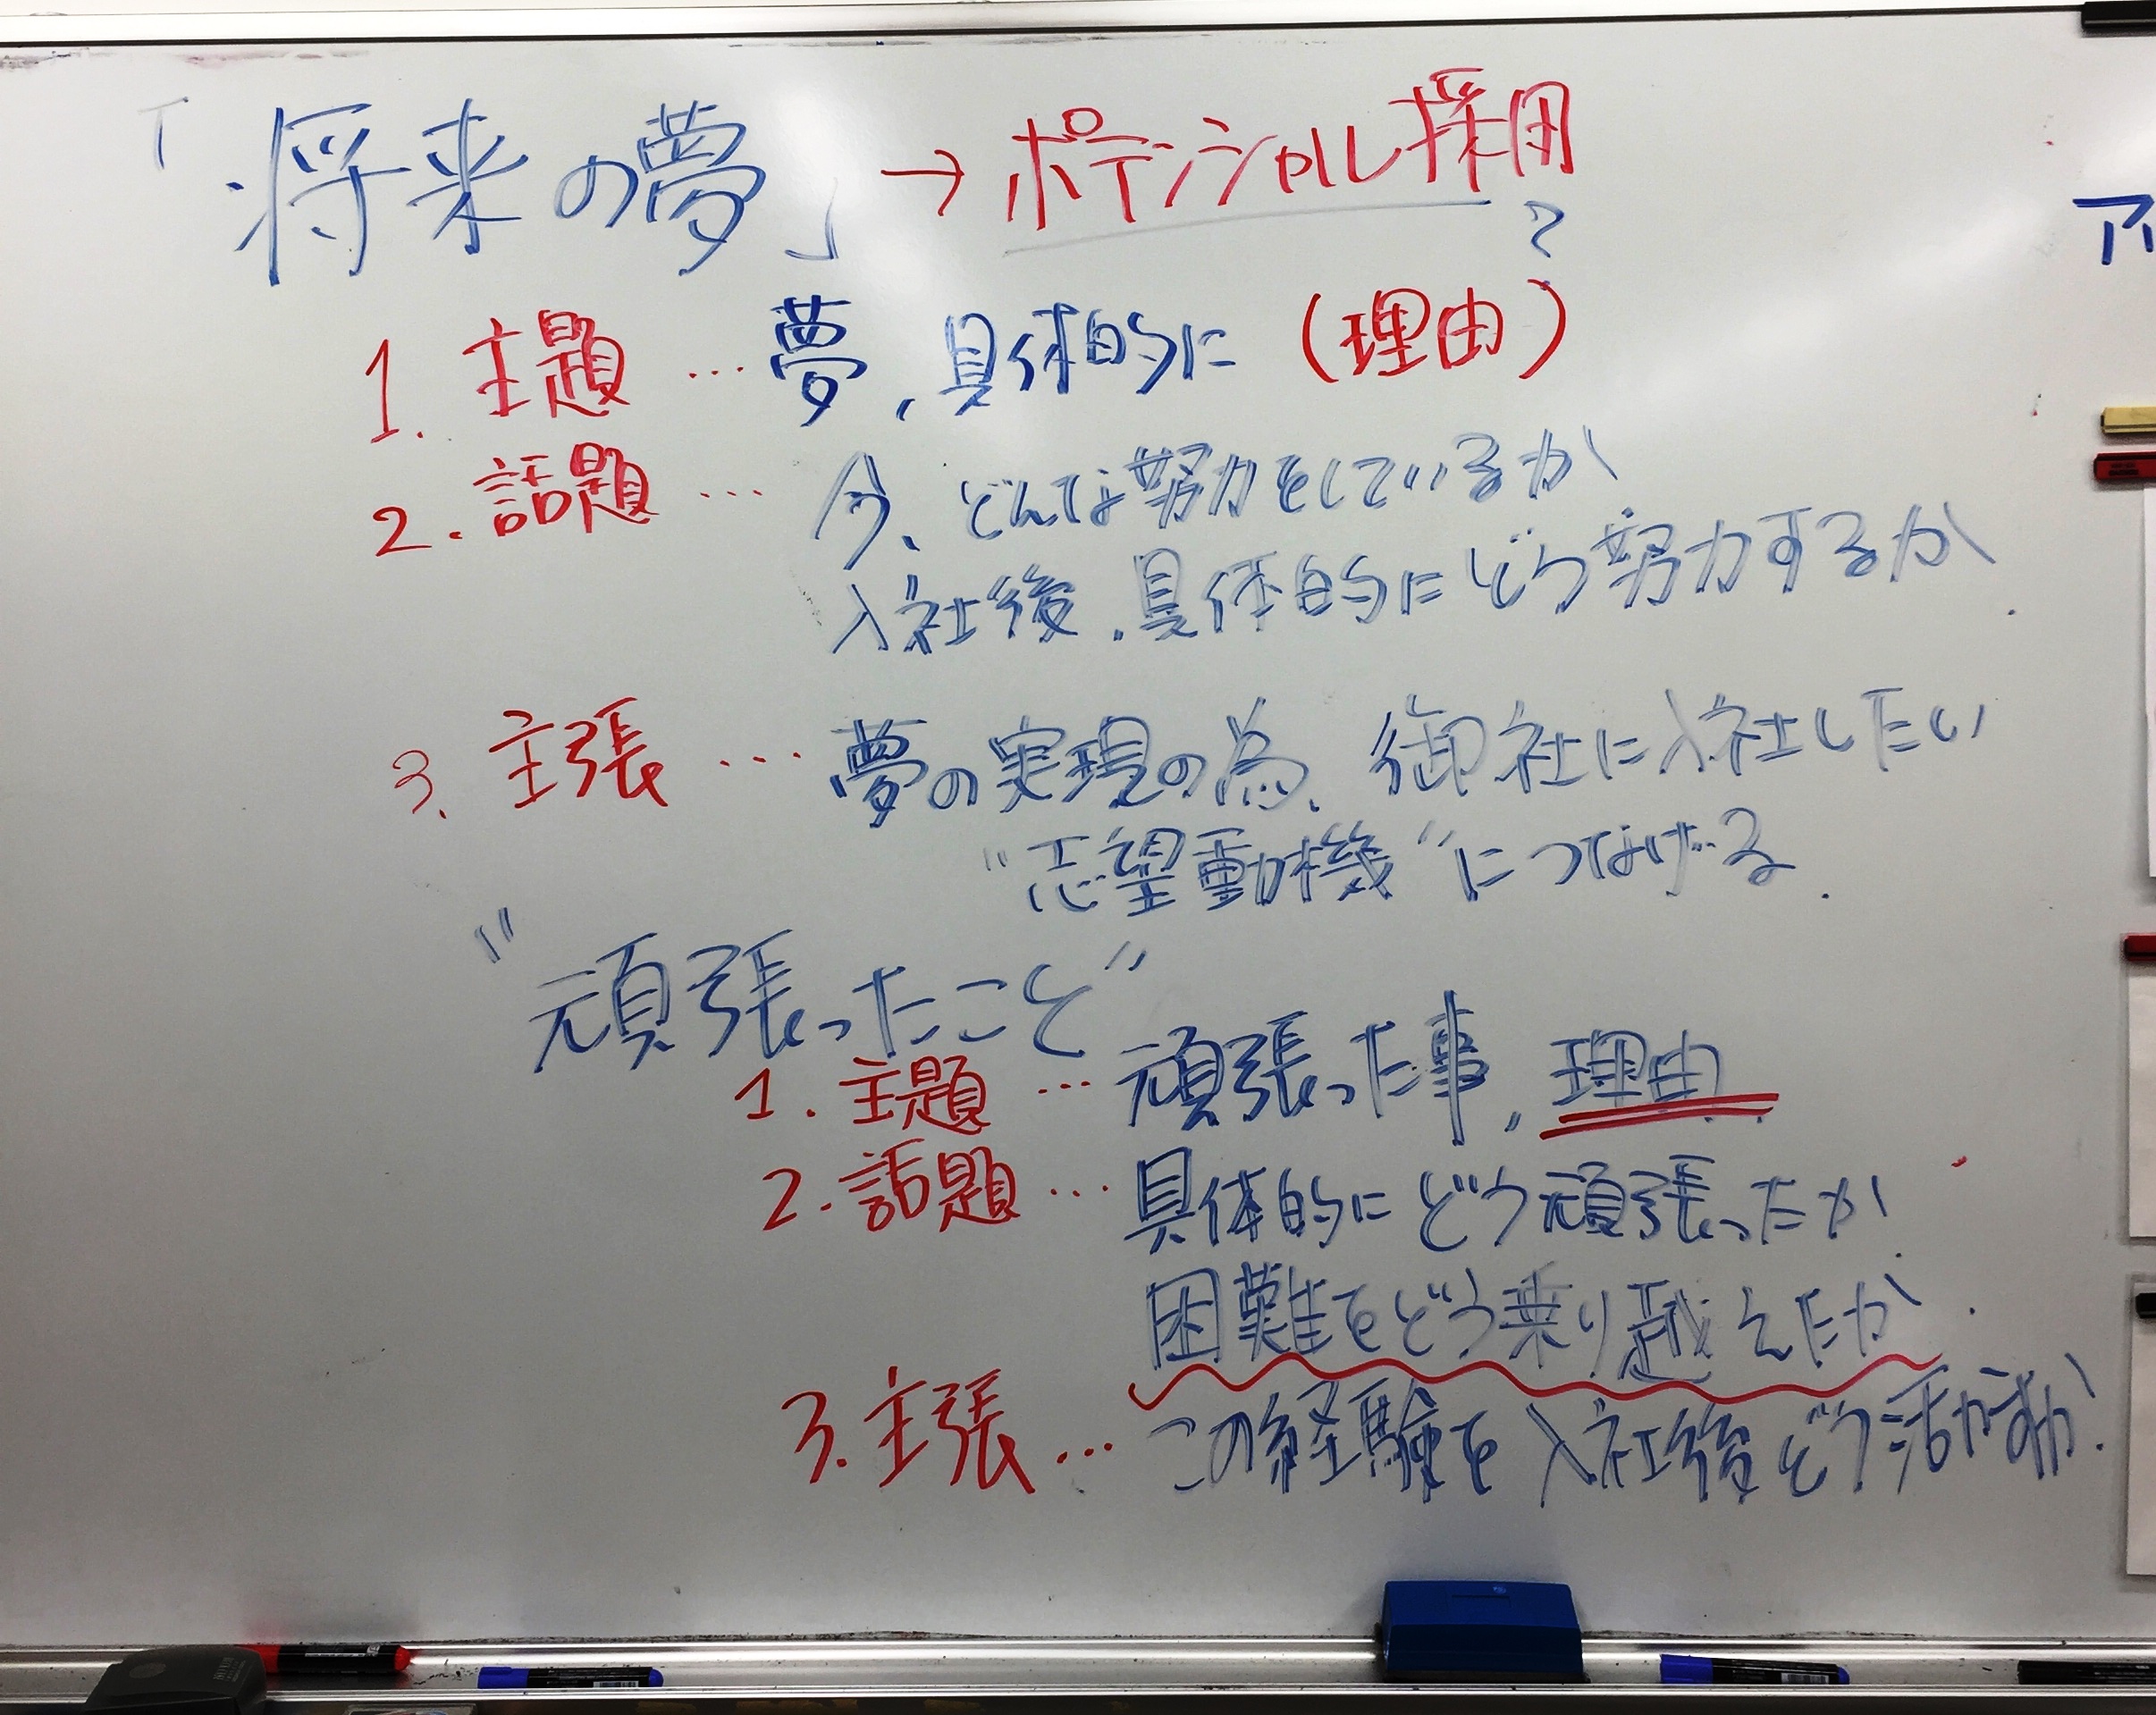 「将来の夢」→ポテンシャル採用
?
1. 主題…夢、具体的に(理由)
2. 話題…今、どんな努力をしているか
入社後、具体的にどう努力するか.
3. 主張…夢の実現の為、御社に入社したい
"志望動機"につなげる.
"頑張ったこと"
1. 主題…頑張った事、理由
2. 話題…具体的にどう頑張ったか.
困難をどう乗り越えたか.
3. 主張…この経験を入社後どう活かすか.